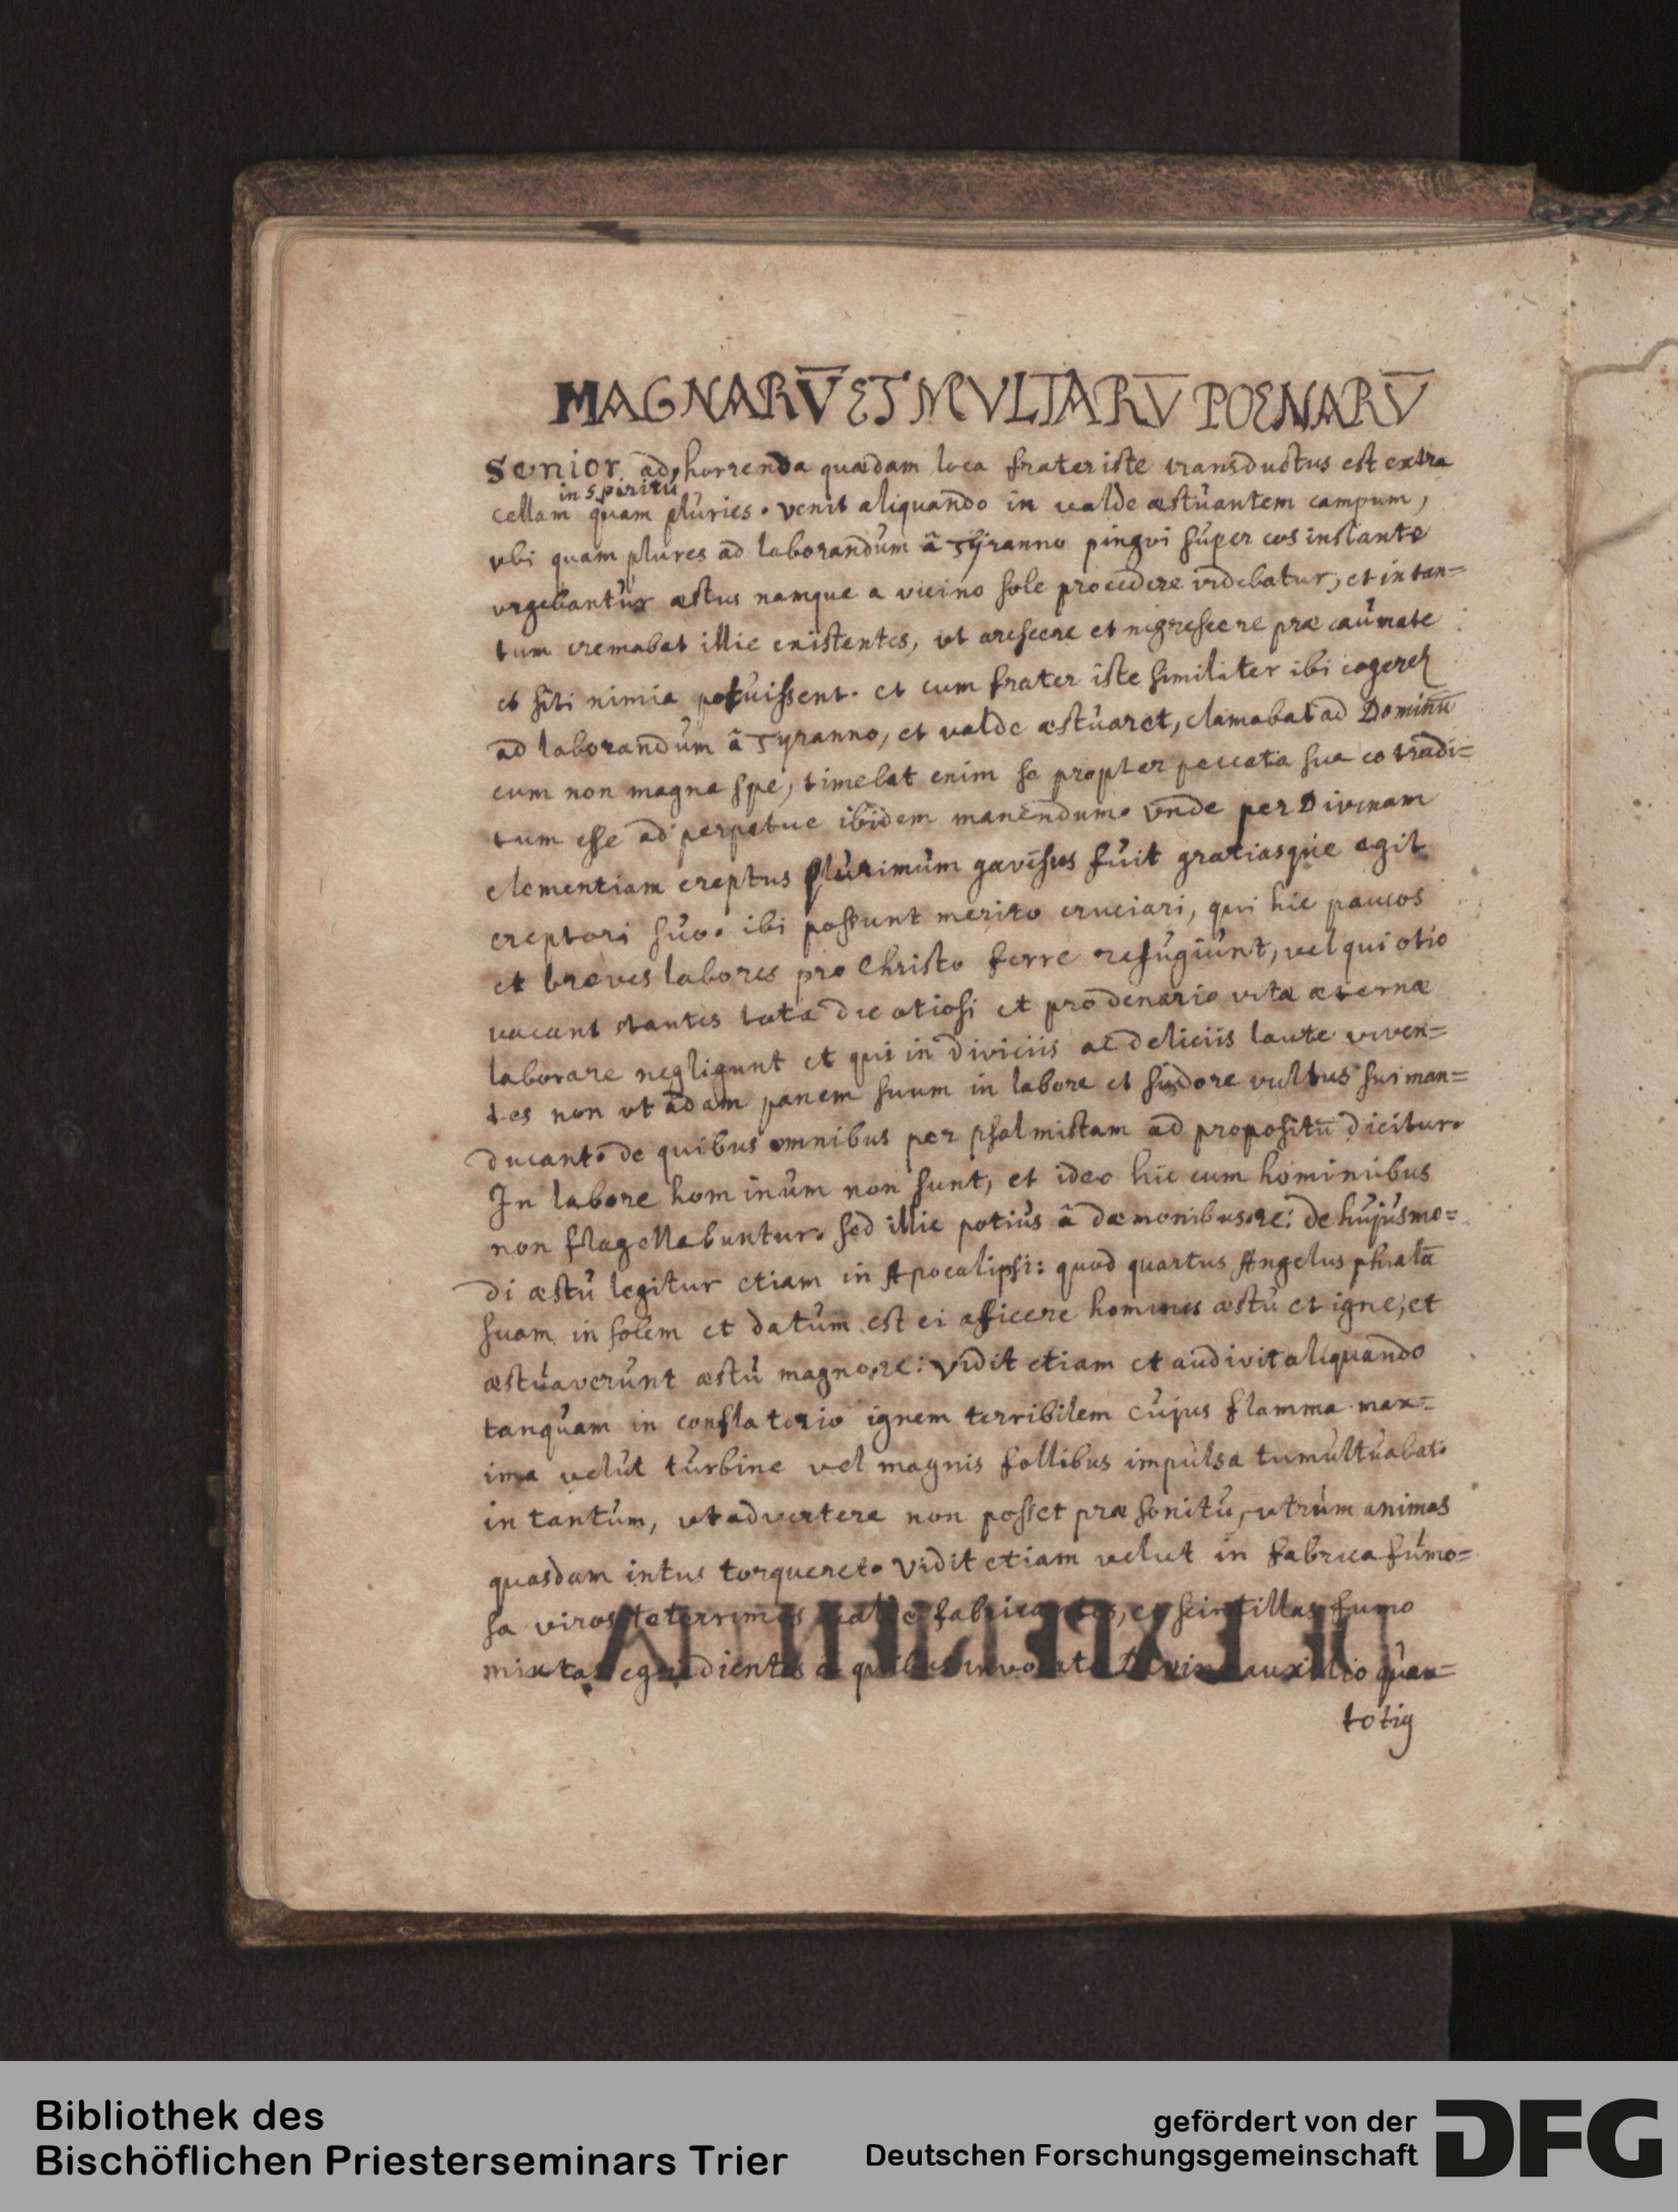 MAGNARV̅ ET MVLTARV̅ POENARV̅
Senior, ad horrenda quædam loca frater iste transductus est extra
in spiritu
cellam quam pluries. venit aliquando in valde æstuantem campum,
vbi quam plures ad laborandum â Tÿranno pingvi super eos instante
vrgebantur æstus namque a vicino sole procedere videbatur, et in tan=
tum cremabat illic existentes, vt arescere et nigrescere præ caumate
et siti nimia potuissent. et cum frater iste similiter ibi cogeret
ad laborandum â Tyranno, et valde æstuaret, clamabat ad Dominū
cum non magna spe, timebat enim se propter peccata sua eo tradi=
tum esse ad perpetue ibidem manendum. vnde per Divinam
clementiam ereptus plurimum gavisus fuit gratiasque egit
ereptori suo. ibi possunt merito cruciari, qui hic paucos
et breves labores pro Christo ferre refugiunt, vel qui otio
vacant stantes tota die otiosi et pro denario vitæ æternæ
laborare negligunt et qui in diviciis ac deliciis laute viven=
tes non vt adam panem suum in labore et sudore vultus sui man=
ducant. de quibus omnibus per psalmistam ad propositū dicitur.
In labore hominum non sunt, et ideo hic cum hominibus
non flagellabuntur. sed illic potius â dæmonibus. rc: de hujusmo=
di æstu legitur etiam in Apocalipsi: quod quartus Angelus phialā
suam in solem et datum est ei aficere homines æstu et igne, et
æstuaverunt æstu magno. rc: vidit etiam et audivit aliquando
tanquam in conflatorio ignem terribilem cujus flamma max=
ima velut turbine vel magnis follibus impulsa tumultuabat.
in tantum, vt advertere non posset præ sonitu, vtrum animas
quasdam intus torqueret. vidit etiam velut in fabrica fumo=
sa viros teterrimos valde fabricantes, et scintillas fumo
mixtas egredientes a quibus invocato Divino auxilio quan=
totig
Bibliothek des
Bischöflichen Priesterseminars Trier
gefördert von der
Deutschen Forschungsgemeinschaft
DFG